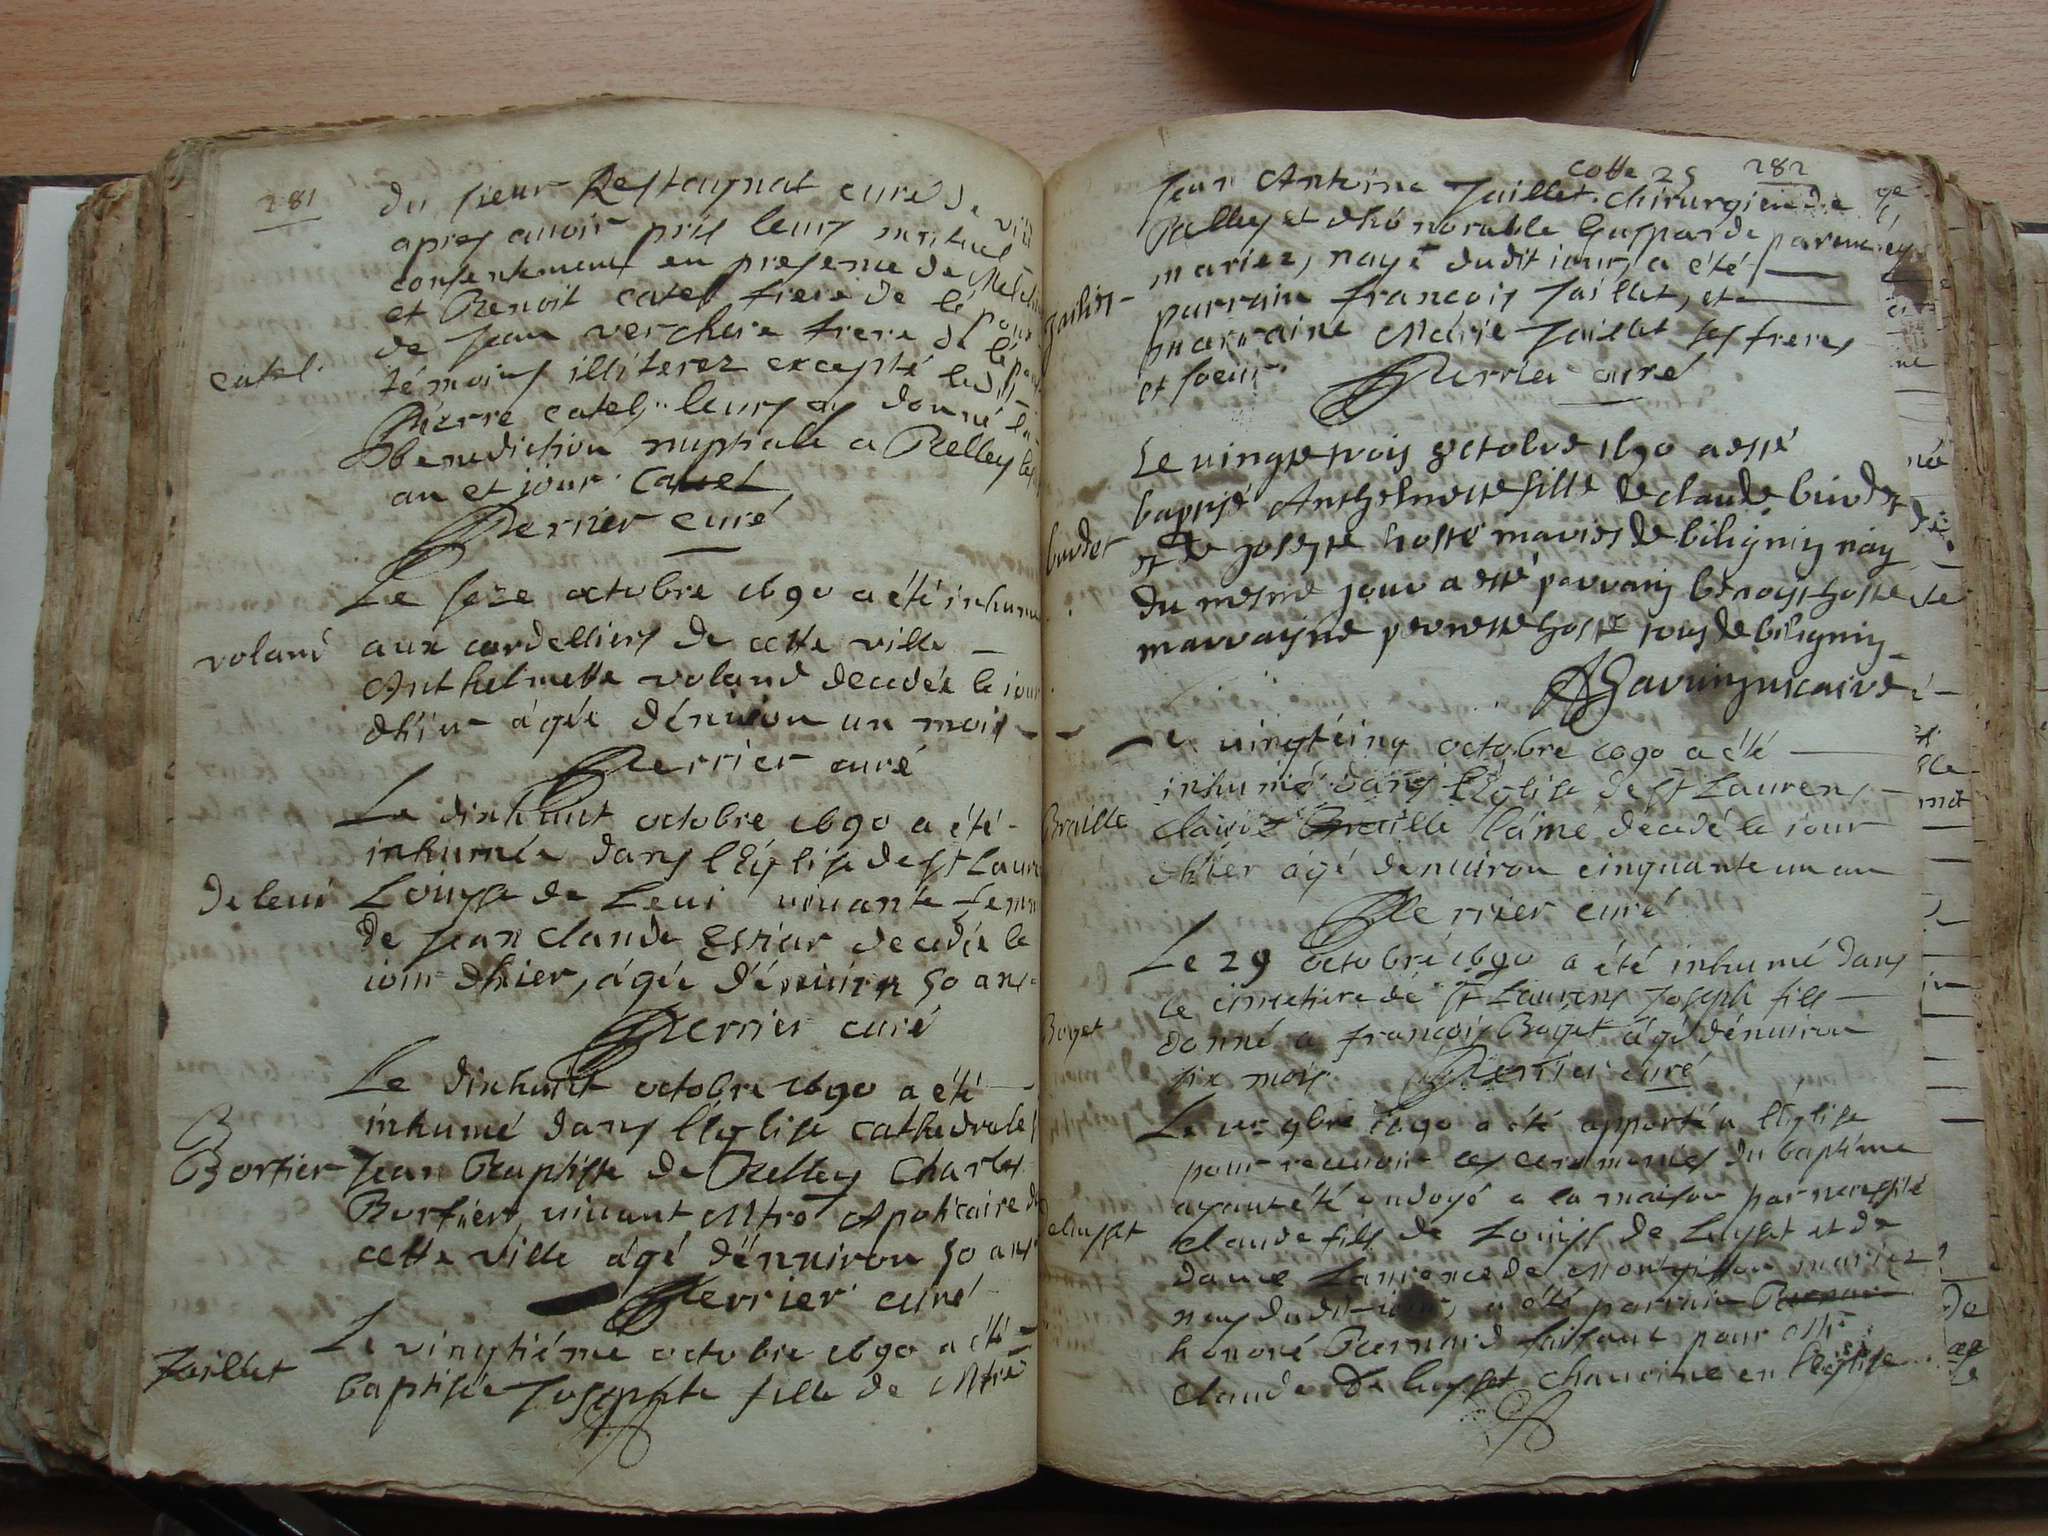 281
du sieur Restaynat curé de
apres auoir pris leurs mutuel
consentement en presence de
et Benoit catel frere de
de Jean verchere frere de
catel.
témoins illiterez excepté ledit
Pierre catel leurs ay donné la
benediction nuptiale a Belley les
an et jour. Catel
Perrier curé
Le seze octobre 1690 a été inhumé
voland
aux cordelliers de cette ville
Anthelmette voland decedée le jour
dhier agée dénuiron un mois
Perrier curé
Le dixhuit octobre 1690 a été
inhumée dans l'Eglise de st Laurens
De leui
Louyse de Leui viuante femme
de Jean claude Estiar decedée le
iour dhier, agée dénuiron 50 ans
Perrier curé
Le dixhuit octobre 1690 a été
inhumé dans l'Eglise cathedrale
Borfier
Jean Baptiste de Belley Charles
Borfier, viuant Mtre Apoticaire de
cette ville agé dénuiron 50 ans
Perrier curé
Jaillet
Le vingtiéme octobre 1690 a été
baptisée Josephte fille de Mtre
cotte 25 282
Jean Antoine Jaillet chirurgien de
Belley et dhonorable Gusparde
mariez, nayé dudit iour, a été
parrain francois Jaillet, et
marraine Marie Jaillet ses freres
et soeur. Perrier curé
Le uingt trois 8ctobre 1690 a esté
baptisé Anthelmette fille de claude burdet
burdet
et de josepte hoste mariés de biligniy nay
du mesme jour a esté parrain benoist hoste
marrayne pernette hoste tous de biligniy
Sauarin uicaire
Le uingtcinq octobre 1690 a été
inhumé dans l'Eglise de st Laurens
Braille
claude Braille l'aîné decedé le iour
dhier agé denuiron cinquante un an
Perrier curé
Le 29 octobre 1690 a été inhumé dans
le cimetiere de st Laurens Joseph fils
Boget
donné a francois Boget agé dénuiron
six mois Perrier curé
Le 9bre 1690 a été apporté a l'Eglise
pour receuoir les ceremonies du baptéme
ayant été ondoyé a la maison par necessité
deluyset
claude fils de Louis de Luyset et de
dame Laurence de mariez
nay dudit iour, a été parrain Bernard
honoré Bernard faisant pour Mre
Claude De luyset chanoine en l'église